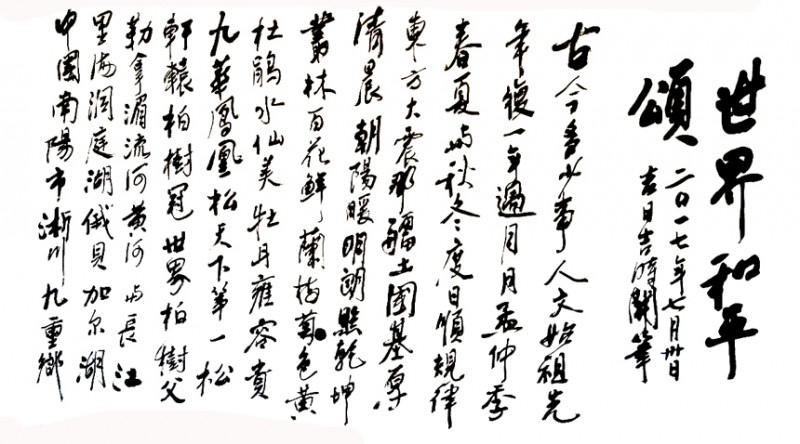 世界和平
頌
二〇一七年七月卅日
吉日吉時開筆
古今多少事人文始祖先
年復一年過月月孟仲季
春夏与秋冬度日順規律
東方大震那疆土固基厚
清晨朝陽暖明朗照乾坤
叢林百花鮮蘭梅菊色黄
杜鵑水仙美牡丹雍容貴
九華鳳凰松天下第一松
軒轅柏樹冠世界柏樹父
勒拿湄流河黄河与長江
里海洞庭湖俄貝加尔湖
中国南陽市淅川九重鄉